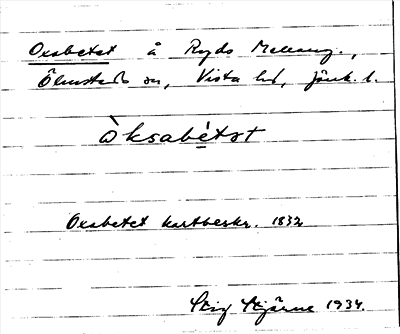 Oxabetet å Ryds Mellang.,
Ölmstads sn, Vista hd, Jönk. l.
òksabé̱tət
Oxabetet kartbeskr. 1832
Stig Stjärne 1934.